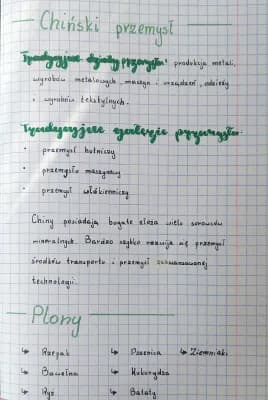 Chiński przemysł
Tradycyjne działy przemysłu: produkcja metali,
wyrobów metalowych, maszyn i urządzeń, odzieży
i wyrobów tekstylnych.
Tradycyjne gałęzie przemysłu:
• przemysł hutniczy
• przemysł maszynowy
• przemysł włókienniczy
Chiny posiadają bogate złoża wielu surowców
mineralnych. Bardzo szybko rozwija się przemysł
środków transportu i przemysł zaawansowanej
technologii.
Plony
↳ Rzepak ↳ Pszenica ↳ Ziemniaki
↳ Bawełna ↳ Kukurydza
↳ Ryż ↳ Bataty